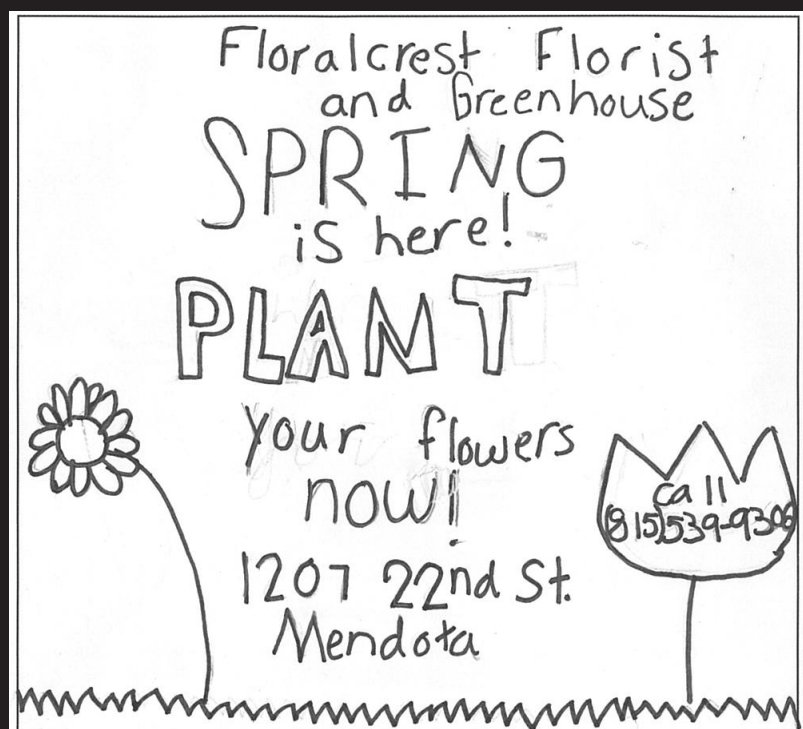 Floralcrest Florist
and Greenhouse
SPRING
is here!
PLANT
your flowers
now!
1207 22nd St.
Mendota
Call
(815)539-9306